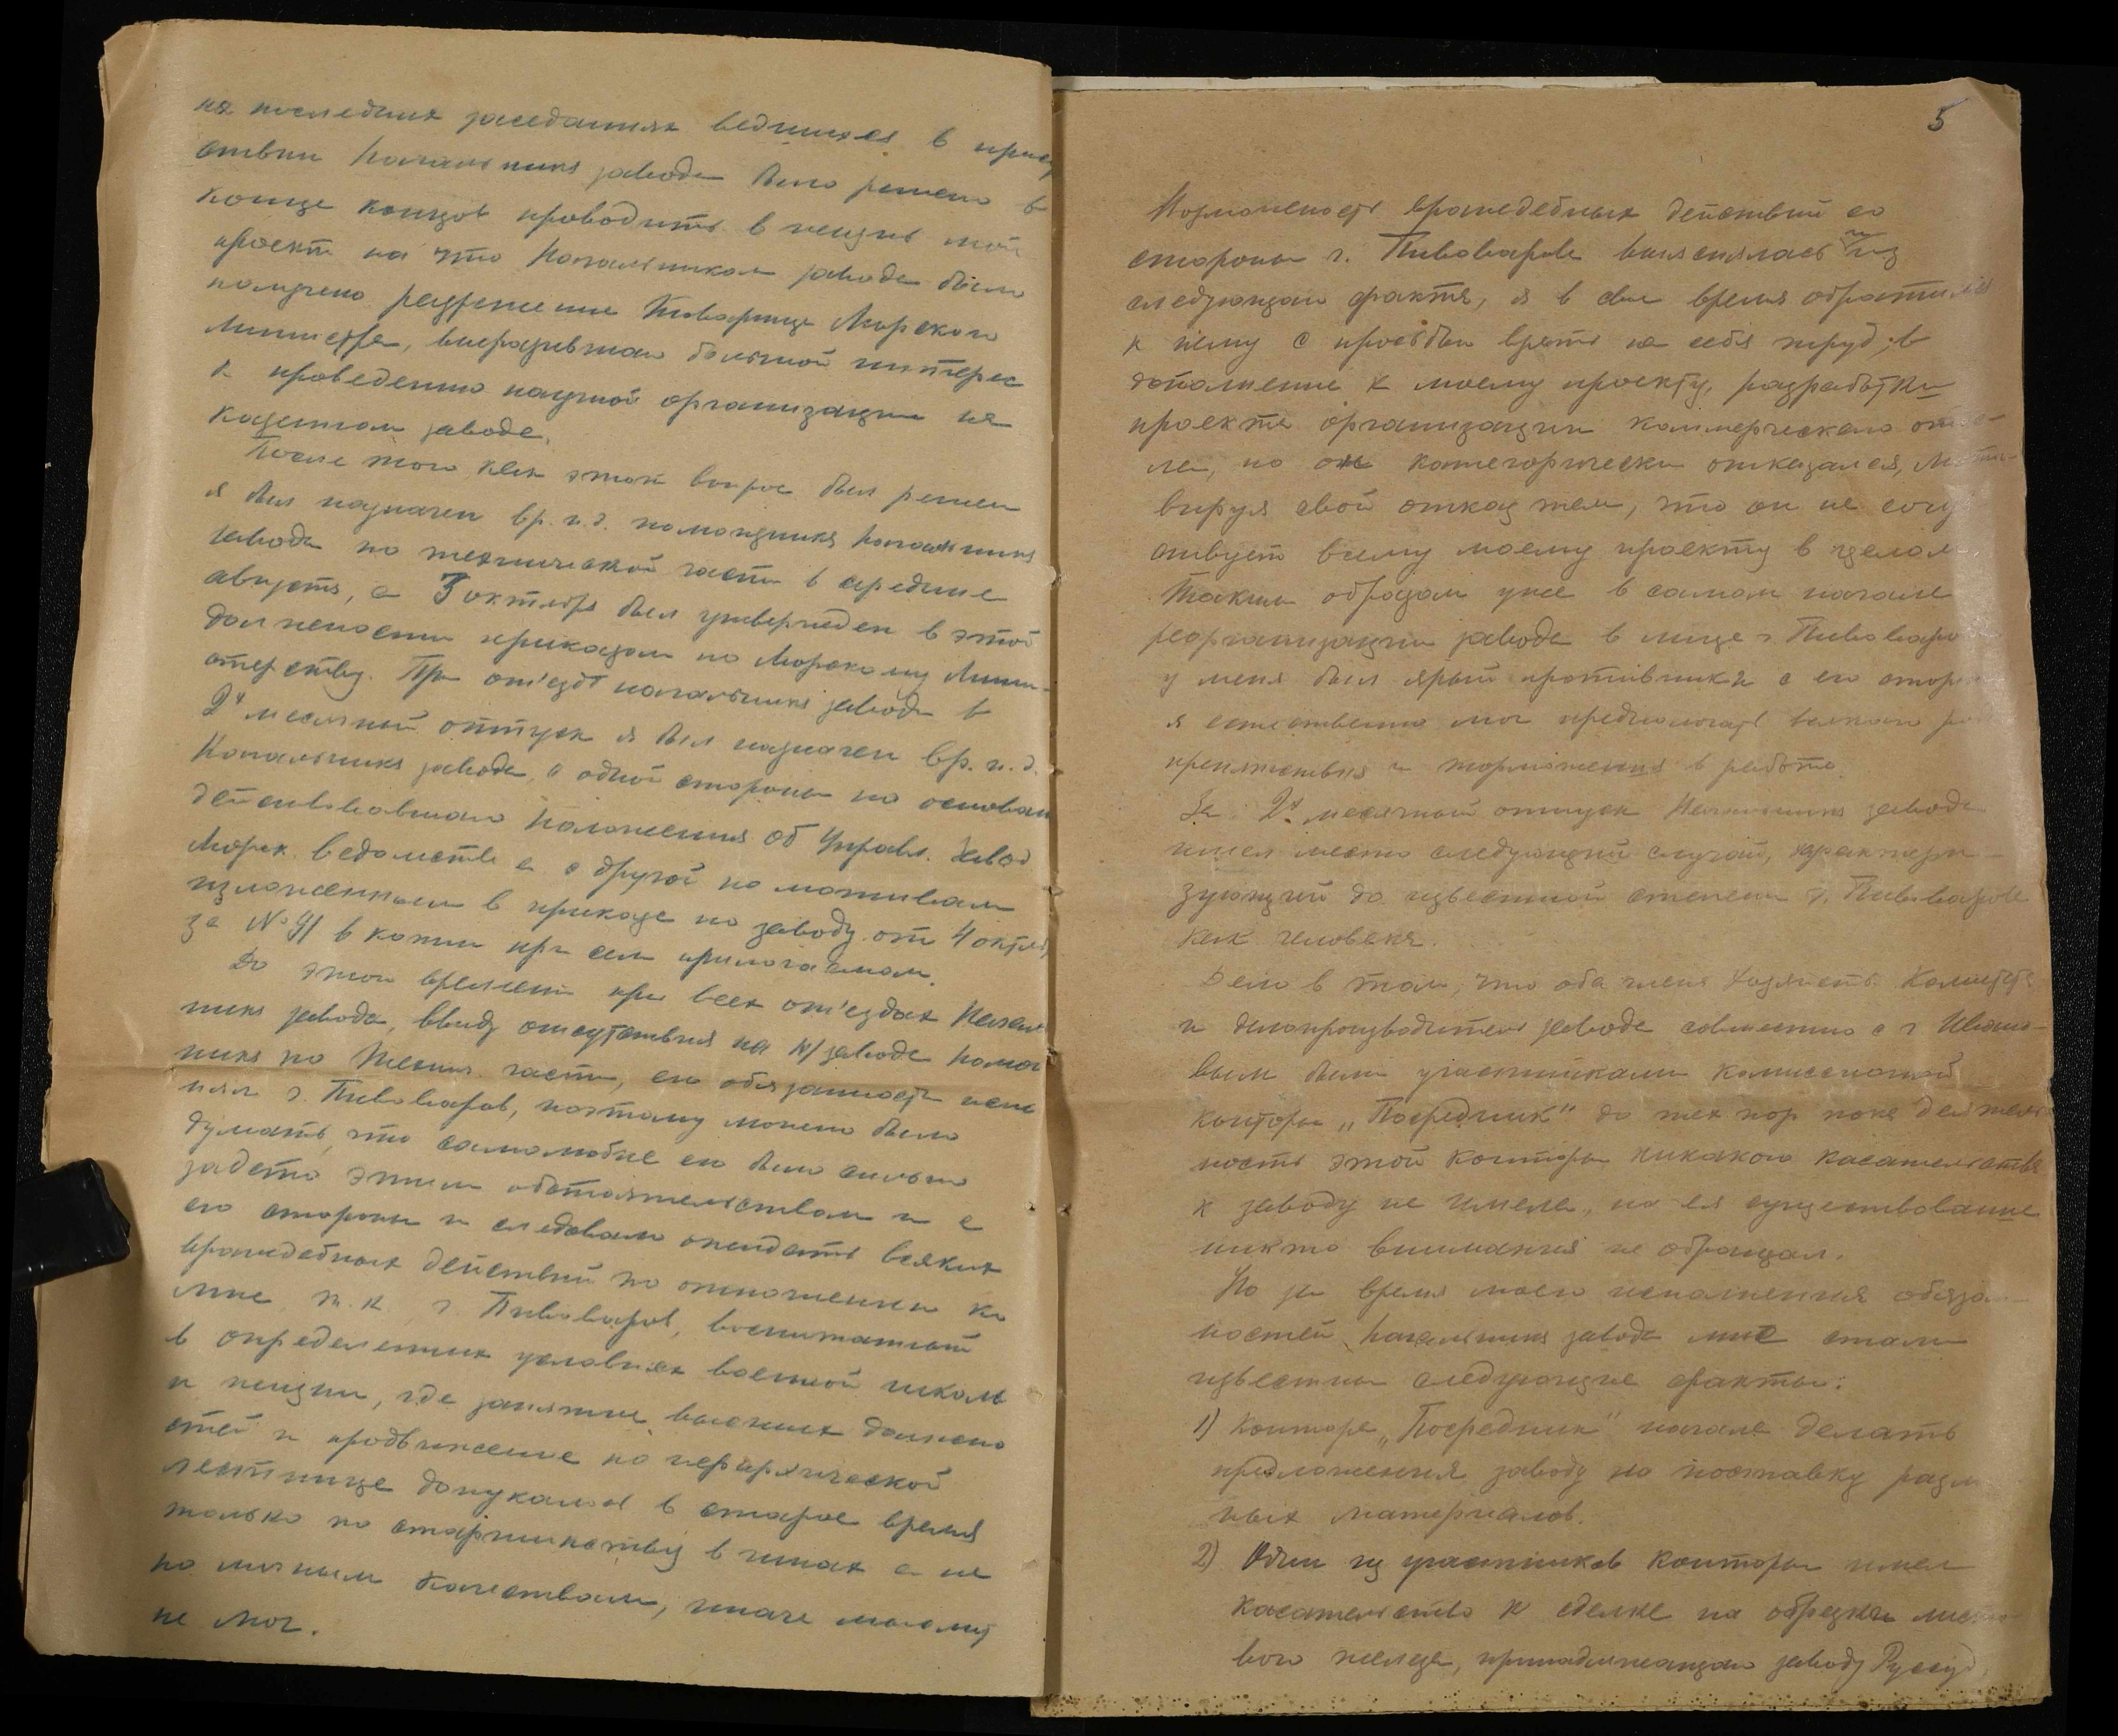 на последних заседаниях ведшихся в прису
ствии Начальника завода было решено в
конце концов проводить в жизнь мой
проект на что Начальником завода было
получено разрешение Товарища Морского
Министра, выразившего большой интерес
к проведению научной организации на
казенном заводе.
После того как этот вопрос был решен
я был назначен вр. и. д. помощника Начальника
завода по технической части в средине
августа, а 3 октября был утвержден в этой
должности приказом по Морскому Мини-
стерству. При от'езде начальника завода в
2х месячный отпуск я был назначен вр. и. д.
Начальника завода, с одной стороны на основан
действовавшего положения об Управл. завод
Морск. ведомства а с другой по мотивам
изложенным в приказе по заводу от 4 октяб
за № 91 в копии при сем прилагаемом.
До этого времени при всех от'ездах Началь
ника завода, ввиду отсутствия на н/заводе помощ
ника по Технич. части, его обязанности испо
нял г. Пивоваров, поэтому можно было
думать, что самолюбие его было сильно
задето этим обстоятельством и с
его стороны и следовало ожидать всяких
враждебных действий по отношению ко
мне, т. к. г. Пивоваров, воспитанный
в определенных условиях военной школы
и жизни, где занятие высших должно
стей и продвижение по иерархической
лестнице допускалось в старое время
только по старшинству в чинах а не
по личным качествам, иначе мыслить
не мог.
5
Возможность враждебных действий со
стороны г. Пивоварова выяснялась и из
следующего факта, я в свое время обратился
к нему с просьбой взять на себя труд, в
дополнение к моему проекту, разработки
проекта организации коммерческого отде-
ла, но он категорически отказался, моти-
вируя свой отказ тем, что он не сочу
ствует всему моему проекту в целом
Таким образом уже в самом начале
реорганизации завода в лице г. Пивоваро
у меня был ярый противник и с его сторо
я естественно мог предполагать всякого ро
препятствия и торможения в работе.
За 2х месячный отпуск Начальника завода
имел место следующий случай, характери-
зующий до известной степени г. Пивоварова
как человека.
Дело в том, что оба члена Хозяйств. Комитета
и делопроизводитель завода совместно с г Ивано-
вым были участниками комиссионной
конторы „Посредник" до тех пор пока деятель
ность этой конторы никакого касательства
к заводу не имела, на ея существование
никто внимания не обращал.
Но за время моего исполнения обязан-
ностей Начальника завода мне стали
известны следующие факты:
1) Контора „Посредник" начала делать
предложения заводу на поставку разли
ных материалов.
2) Один из участников конторы имел
касательство к сделке на обрезки листо
вого железа, принадлежащего заводу Руссуд